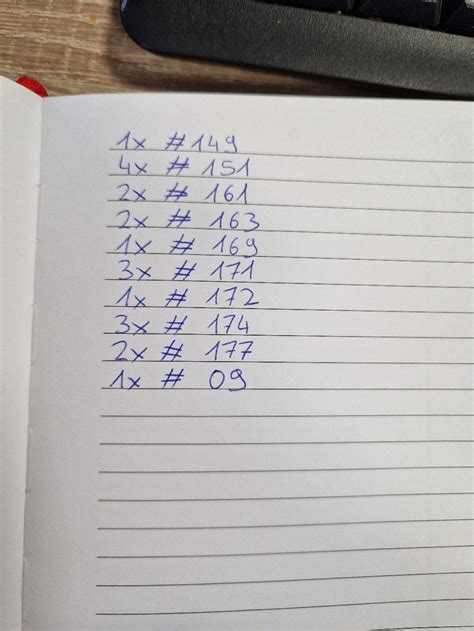 1x #149
4x # 151
2x # 161
2x # 163
1x # 169
3x # 171
1x # 172
3x # 174
2x # 177
1x # 09